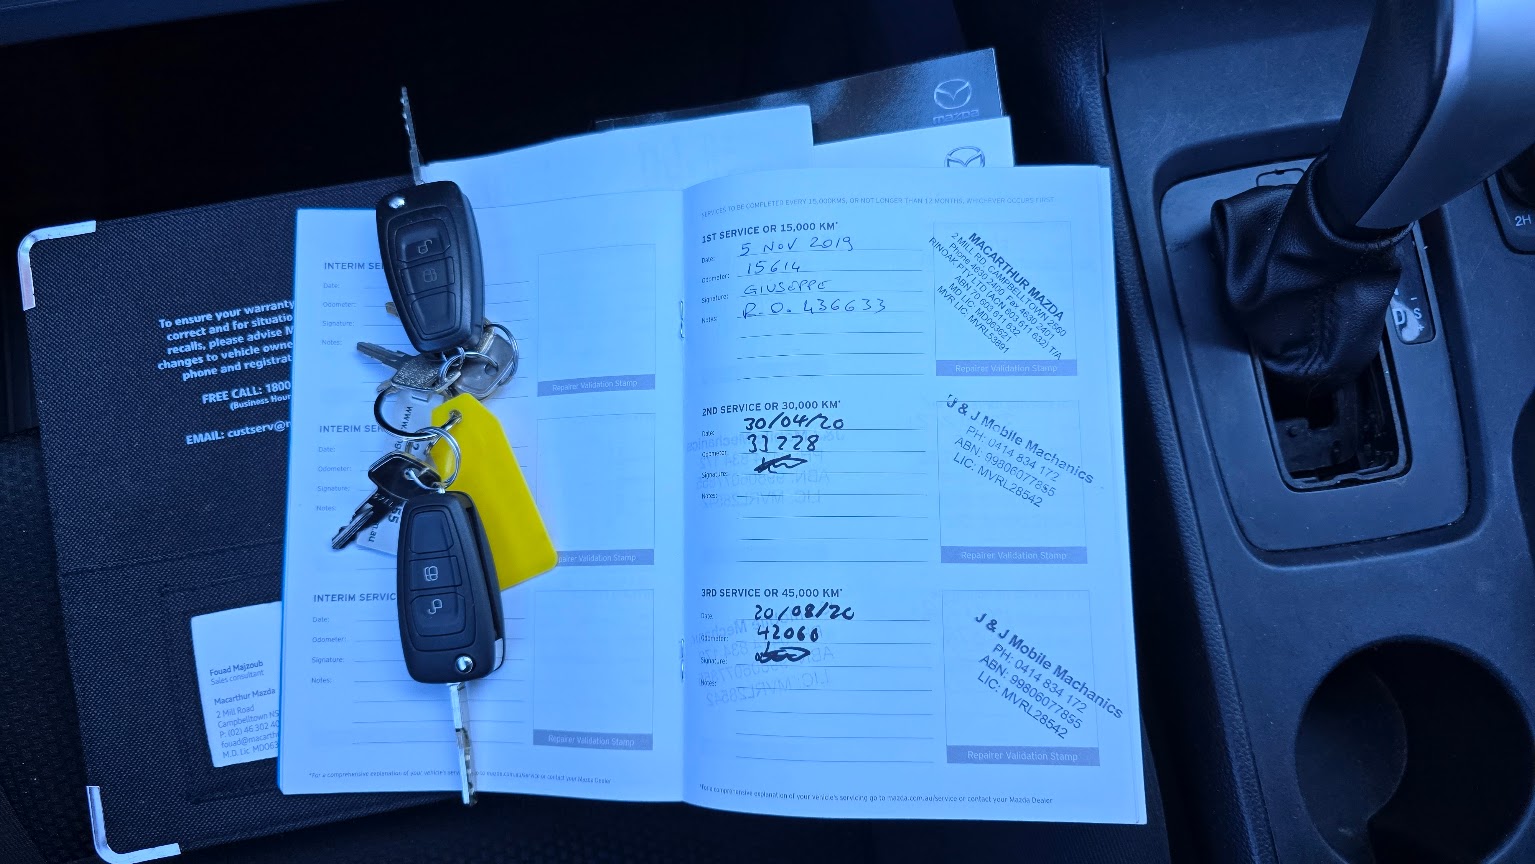 To ensure your warranty
correct and for situatio
recalls, please advise M
changes to vehicle owne
phone and registrat
FREE CALL: 1800
(Business Hour
EMAIL: custserv@
Fouad Majzoub
Sales consultant
Macarthur Mazda
2 Mill Road
Campbelltown NS
P: (02) 46 302 40
fouad@macarth
M.D. Lic MD063
INTERIM SER
Date:
Odometer:
Signature:
Notes:
Repairer Validation Stamp
INTERIM SE
Date:
Odometer:
Signature:
Notes:
Repairer Validation Stamp
INTERIM SERVIC
Date:
Odometer:
Signature:
Notes:
Repairer Validation Stamp
*For a comprehensive explanation of your vehicle's
or contact your Mazda Dealer
SERVICES TO BE COMPLETED EVERY 15,000KMS, OR NOT LONGER THAN 12 MONTHS, WHICHEVER OCCURS FIRST
1ST SERVICE OR 15,000 KM*
Date: 5 NOV 2019
Odometer: 15614
Signature: GIUSEPPE
Notes: R.O. 436633
MACARTHUR MAZDA
2 MILL RD, CAMPBELLTOWN 2560
Phone 4630-2400 Fax 4630-2401
RINOAK PTY LTD (ACN 603 611 632) T/A
ABN 70 603 611 632
MD LIC: MD063621
MVR LIC: MVRL53891
Repairer Validation Stamp
2ND SERVICE OR 30,000 KM*
Date: 30/04/20
Odometer: 31228
Signature:
Notes:
J & J Mobile Machanics
PH: 0414 834 172
ABN: 99806077855
LIC: MVRL28542
Repairer Validation Stamp
3RD SERVICE OR 45,000 KM*
Date: 20/08/20
Odometer: 42060
Signature:
Notes:
J & J Mobile Machanics
PH: 0414 834 172
ABN: 99806077855
LIC: MVRL28542
Repairer Validation Stamp
*For a comprehensive explanation of your vehicle's servicing go to mazda.com.au/service or contact your Mazda Dealer
mazda
D
S
2H